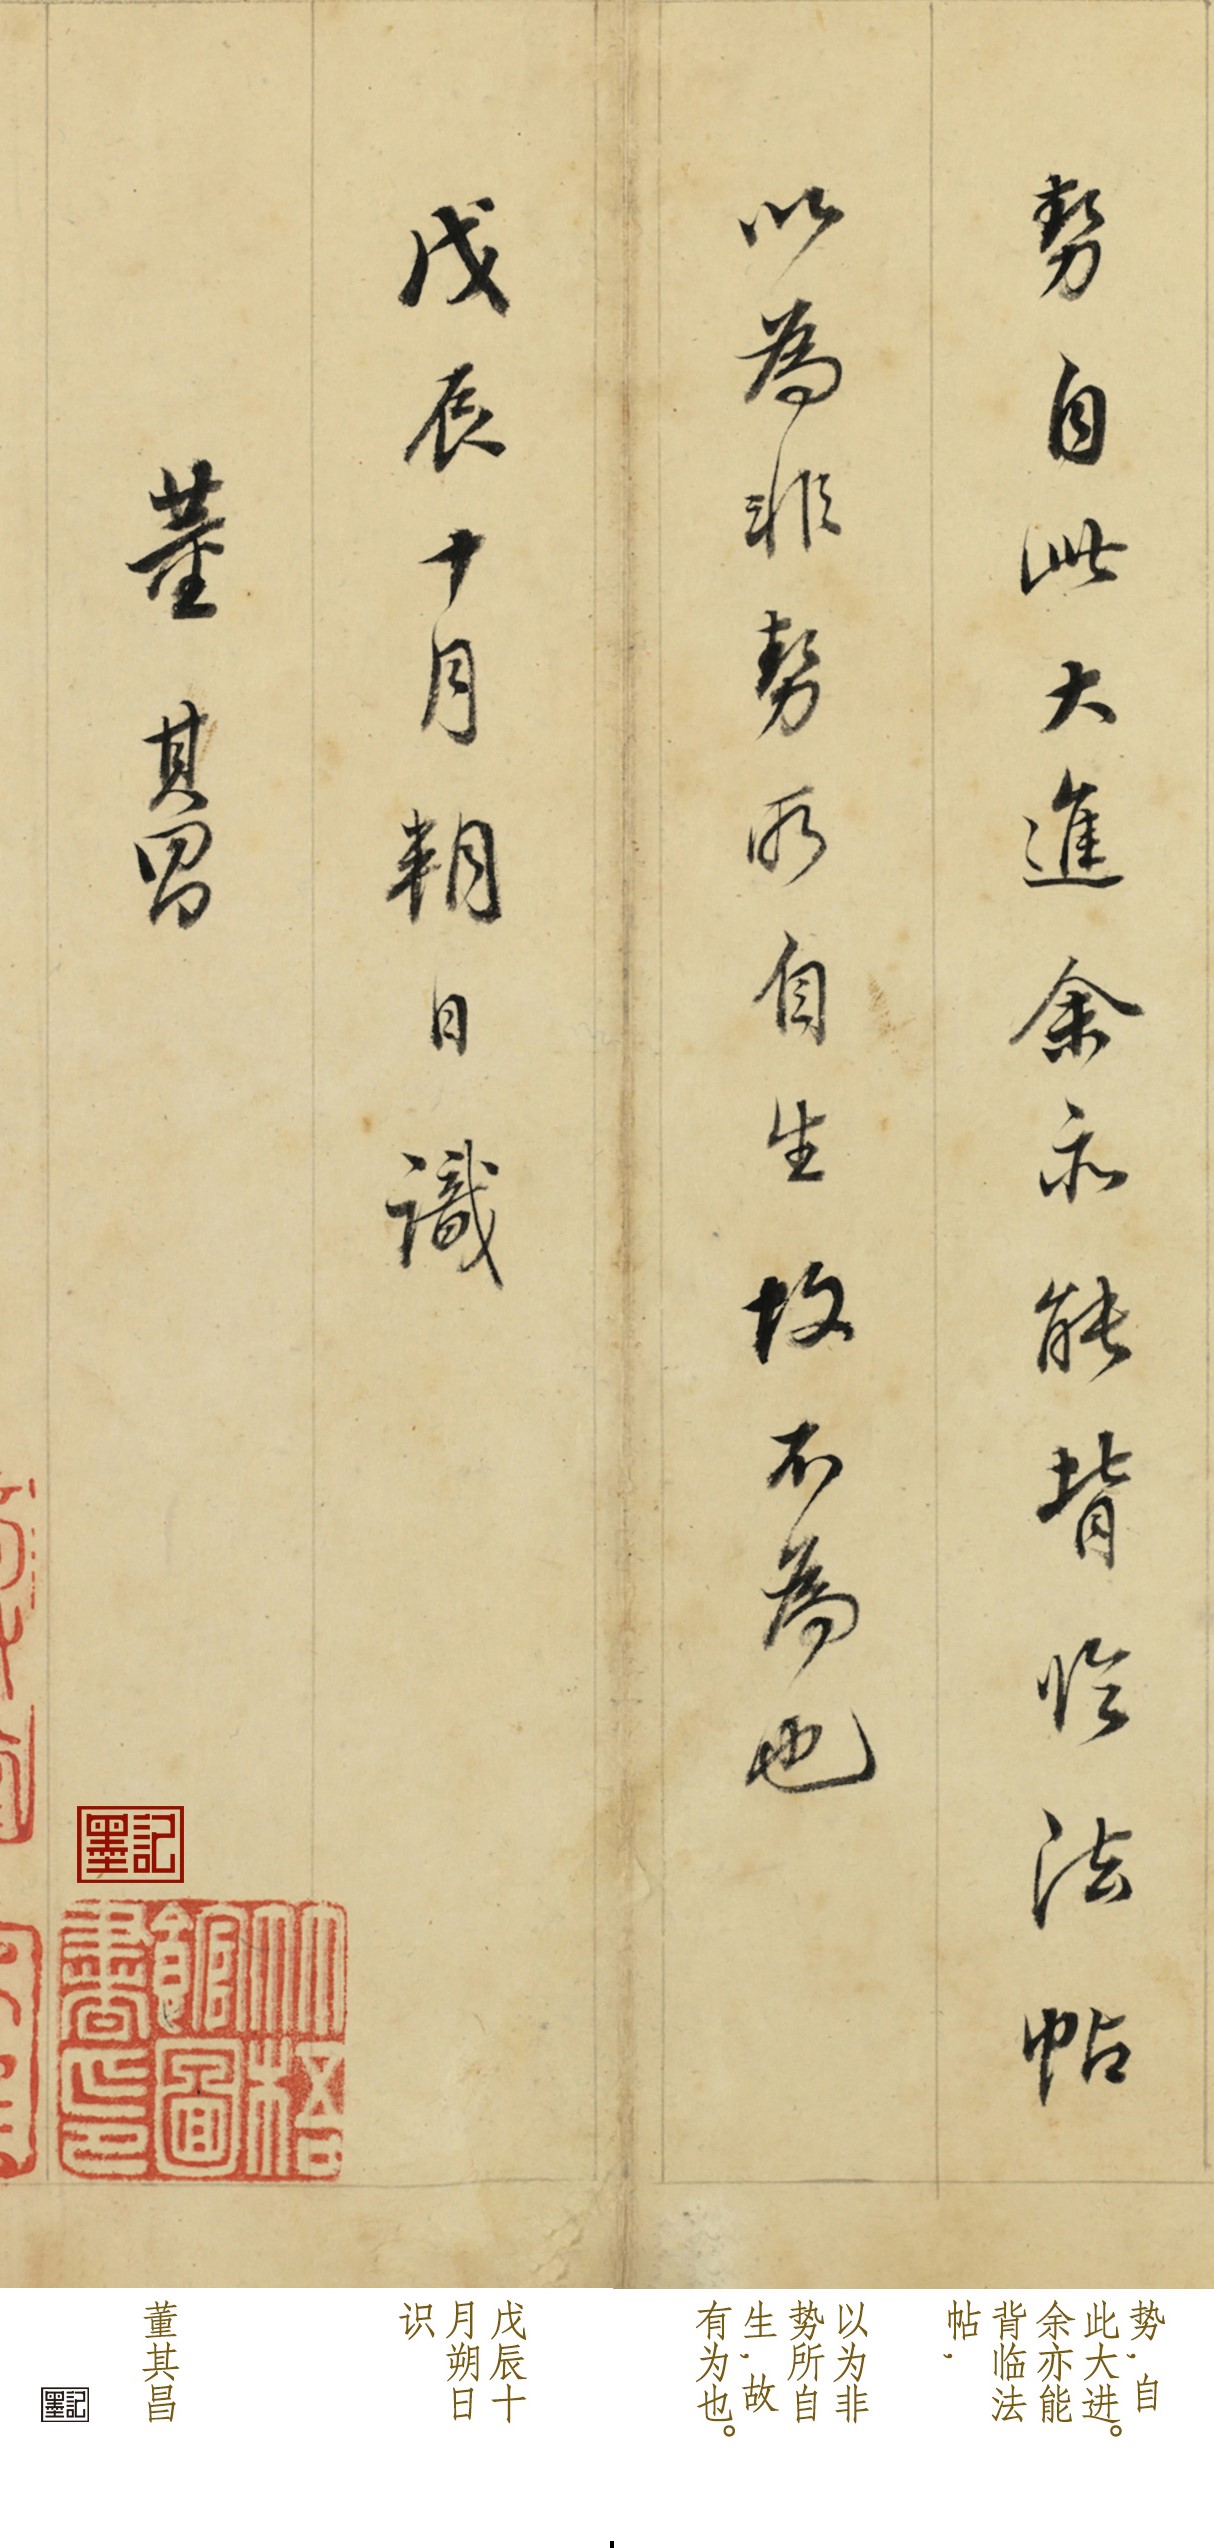 勢自此大進余亦能背临法帖
以為非勢所自生故不為也
戊辰十月朔日識
董其昌
墨記
竹格
館圖
書印
势，自
此大进。
余亦能
背临法
帖，
以为非
势所自
生，故
有为也。
戊辰十
月朔日
识
董其昌
墨記